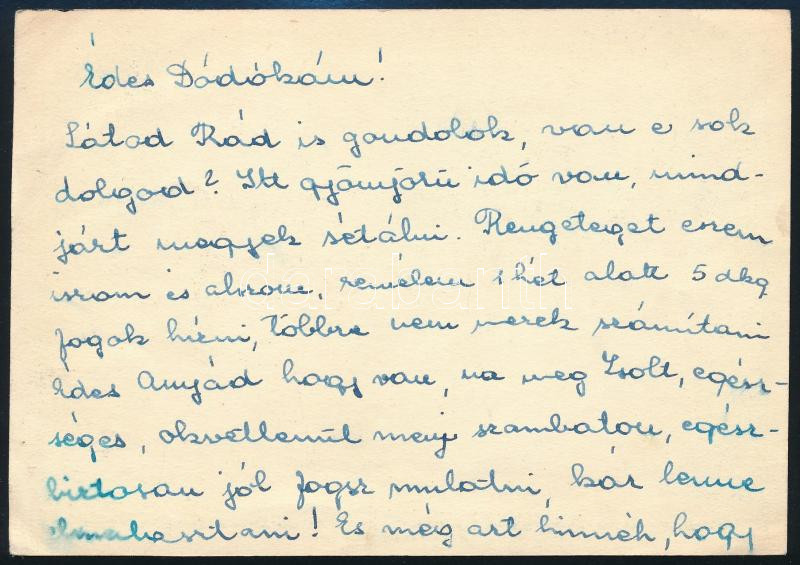 Édes Dódókám!
Látod Rád is gondolok, van e sok
dolgod? Itt gyönyörü idö van, mind-
járt megyek sétálni. Rengeteget eszem
iszom és alszom, remélem 1 hét alatt 5 dkg
fogok hízni, többre nem merek számítani
Édes Anyád hogy van, na meg Zsolt, egész-
séges, okvetlenül menj szombaton, egész-
biztosan jól fogsz mulatni, kár lenne
elmulasztani! És még azt hinnéh, hogy